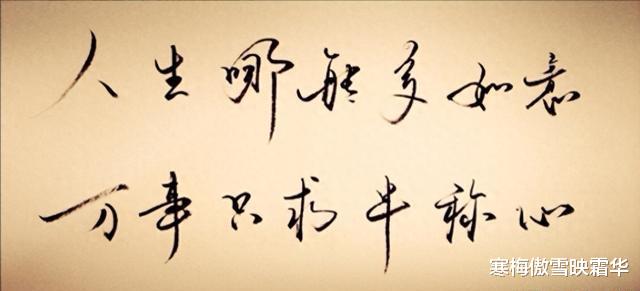 人生哪能多如意
万事只求半称心
寒梅傲雪映霜华